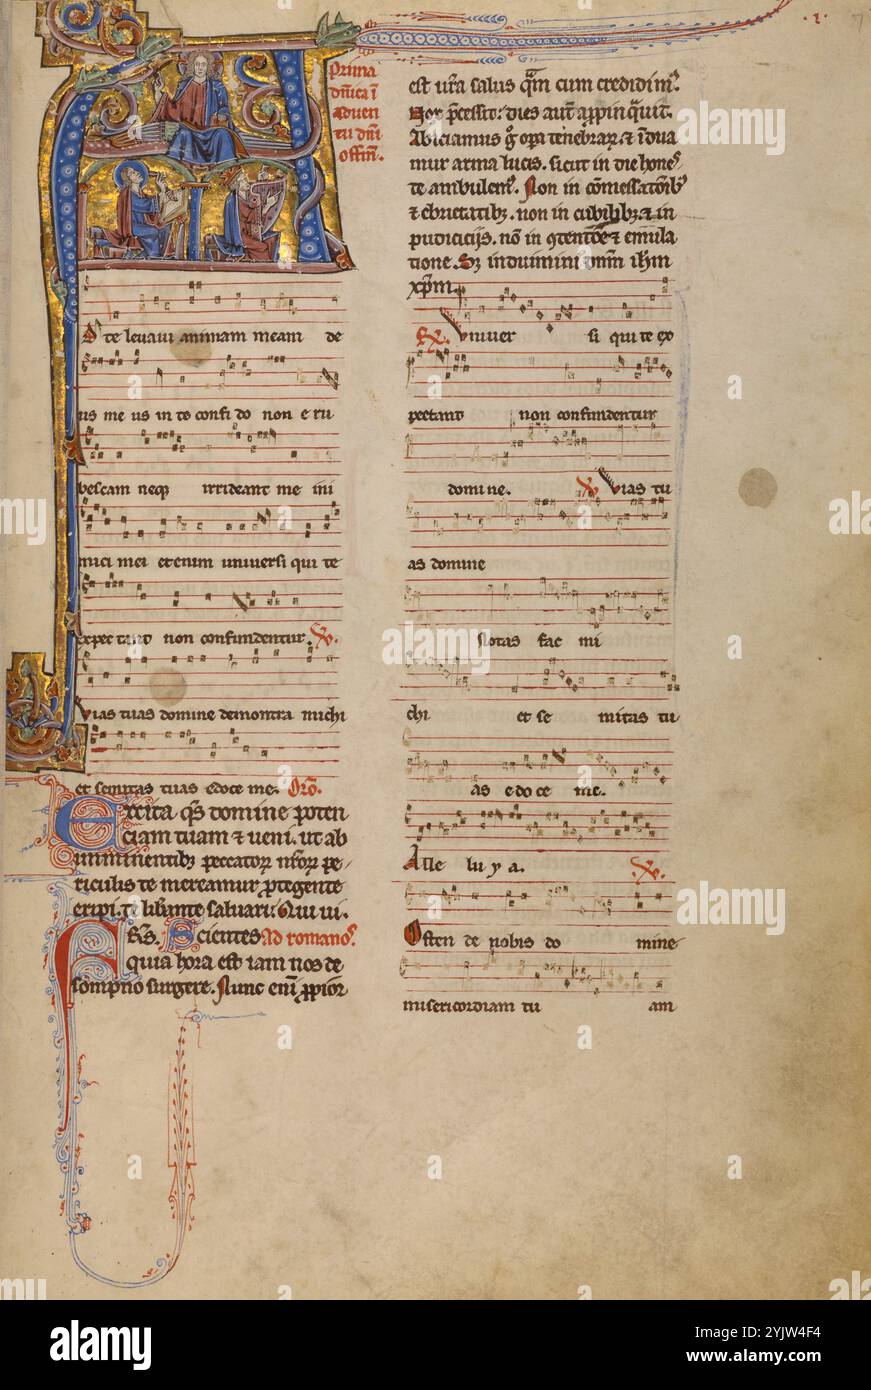 Prima
dnica i
adven
tu dni
offm.
A te levavi animam meam de
us me us in te confi do non e ru
bescam neq irrideant me ini
mici mei etenim universi qui te
expec tant non confundentur. V.
Vias tuas domine demonstra michi
et semitas tuas edoce me. Oro.
Excita qs domine poten
ciam tuam ⁊ veni. ut ab
imminentib peccator nror pe
riculis te mereamur ptegente
eripi. te liberante salvari: Qui vi.
Frs. Scientes Ad romano.
quia hora est iam nos de
sompno surgere. Nunc eni ppior
.1.
est vra salus qm cum credidim.
Nox pcessit: dies aut appinquit.
Abiciamus g opa tenebrar. ⁊ idua
mur arma lucis. sicut in die hone
te ambulem. Non in comessatoib
⁊ ebrietatib. non in cubilib ⁊ in
pudiciciis. no in qtentoe ⁊ emula
tione. Sz induimini dnm ihm
xpm.
Univer si qui te ex
pectant non confundentur
domine. V Vias tu
as domine
notas fac mi
chi et se mitas tu
as e do ce me.
Alle lu y a. V.
Osten de nobis do mine
misericordiam tu am
alamy
alamy
www.alamy.com
Image ID: 2YJW4F4